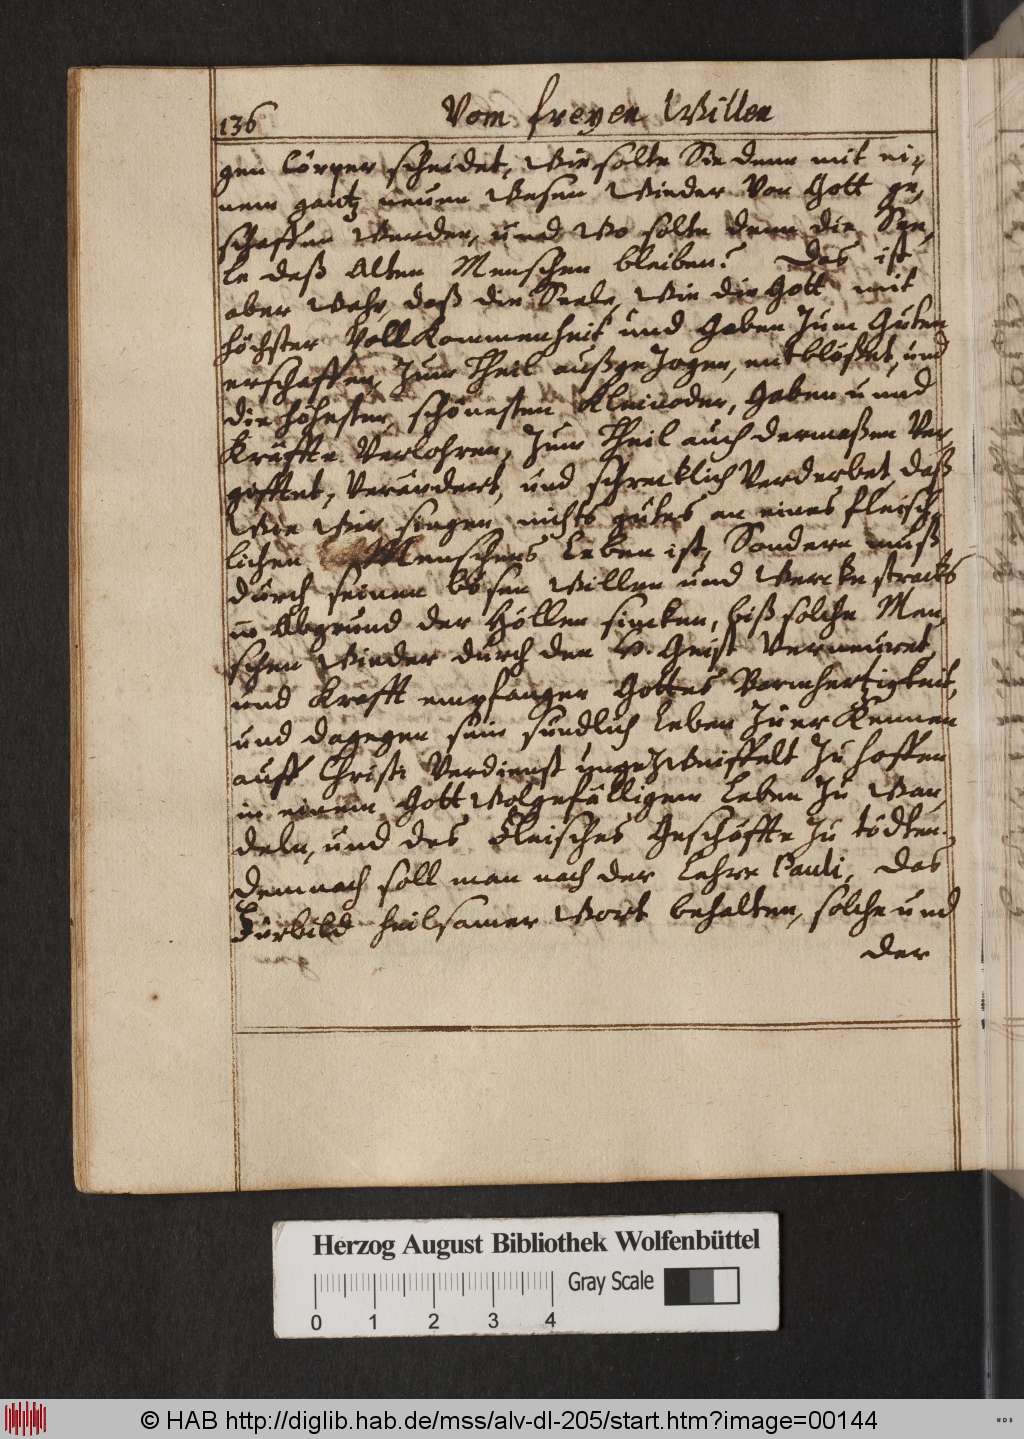 136 Vom freyen Willen
gen Cörper scheidet, Wie solte Sie denn mit ei-
nem gantz neuen Wesen Wieder Von Gott ge-
schaffen Werden, und Wo solte denn die See-
le deß Alten Menschen bleiben? Das ist
aber Wahr, daß die Seele, Wie die Gott mit
höchster VollKommenheit und Gaben Zum Guten
erschaffen, Zum Theil außgeZogen, entblößet, und
die höhesten, schönesten Kleinoder, Gaben unnd
Kräffte Verlohren, Zum Theil auch dermaßen Ver-
gifftet, Verändert, und schrecklich Verderbet, daß
Wie Wir singen, nichts gutes an eines fleisch-
lichen Menschens Leben ist, Sondern muß
durch seinen bösen Willen und Wercke stracks
in Abgrund der Höllen sincken, biß solche Men-
schen Wieder durch den H. Geist Verneuret,
und Krafft empfangen Gottes Barmhertzigkeit,
und dagegen sein sündlich Leben Zu erKennen
auff Christi Verdienst ungeZWeiffelt Zu hoffen
in einem Gott Wolgefälligem Leben Zu Wan-
deln, und des Fleisches Geschäffte Zu tödten.
Demnach soll man nach der Lehre Pauli, das
Fürbild heilsamer Wort behalten, solche und
der
Herzog August Bibliothek Wolfenbüttel
Gray Scale
0 1 2 3 4
© HAB http://diglib.hab.de/mss/alv-dl-205/start.htm?image=00144